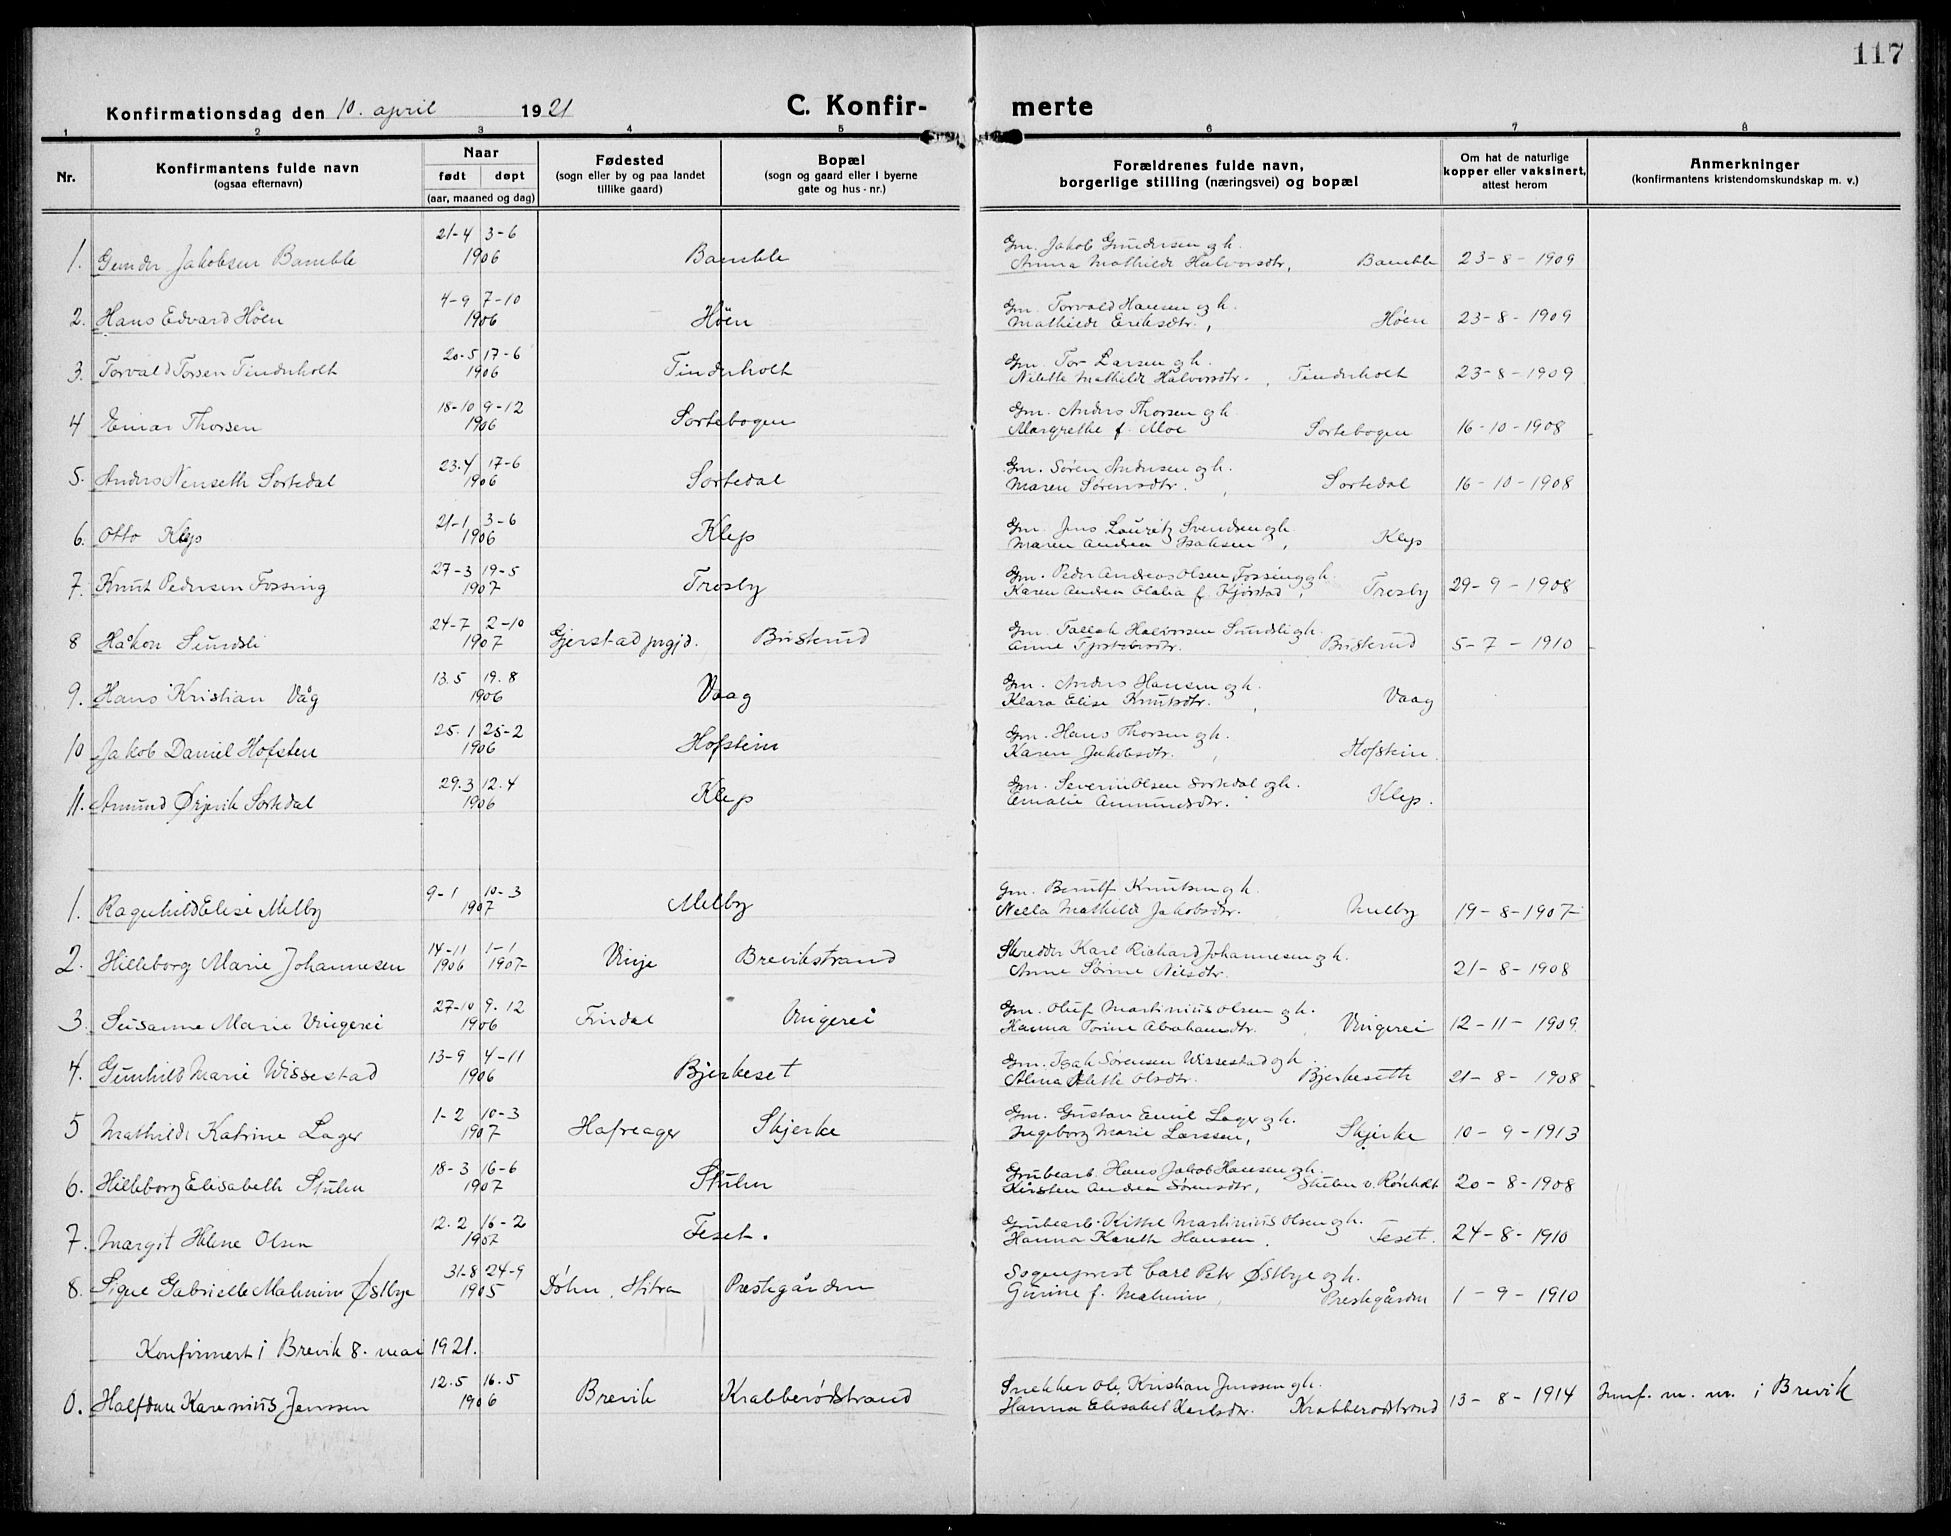 117
Konfirmationsdag den 10. april 1921 C. Konfir- merte
1 2 3 4 5 6 7 8
Nr. Konfirmantens fulde navn (ogsaa efternavn) Naar født døpt (aar, maaned og dag) Fødested (sogn eller by og paa landet tillike gaard) Bopæl (sogn og gaard eller i byerne gate og hus-nr.) Forældrenes fulde navn, borgerlige stilling (næringsvei) og bopæl Om hat de naturlige kopper eller vaksinert, attest herom Anmerkninger (konfirmantens kristendomskundskap m. v.)
21-4 3-6 Gm. Jakob Gundersen og h.
1. Gunder Jakobsen Bamble 1906 Bamble Anna Mathilde Halvorsdtr, Bamble 23-8-1909
4-9 7-10 Gm. Torvald Hansen og h.
2. Hans Edvard Høen 1906 Høen Mathilde Eriksdtr., Høen 23-8-1909
20-5 17-6 Gm. Tor Larsen og h.
3. Torvald Torsen Tinderholt 1906 Tinderholt Nilette Mathilde Halvorsdtr., Tinderholt 23-8-1909
18-10 9-12 Gm. Anders Thorsen og h.
4 Einar Thorsen 1906 Sortebogen Margrethe f. Moe Sortebogen 16-10-1908
23.4 17-6 Gm. Søren Andersen og h.
5. Anders Nenseth Sortedal 1906 Sortedal Maren Sørensdtr., Sortedal 16-10-1908
21-1 3-6 Gm. Jens Lauritz Svendsen og h.
6. Otto Klep 1906 Klep Maren Andrea Isaksen, Klep
27-3 19-5 Gm. Peder Andreas Olsen Fossing og h.
7. Knut Pedersen Fossing 1907 Trosby Karen Andrea Olalia f. Kjørstad, Trosby 29-9-1908
24-7 2-10 Gm. Tallak Halvorsen Sundsli og h.
8 Håkon Sundsli 1907 Gjerstad prgjd. Bristerud Anne Tjostolvsdtr. Bristerud 5-7-1910
13.5 19.8 Gm. Anders Hansen og h.
9. Hans Kristian Våg 1906 Vaag Klara Elise Knutsdtr., Vaag
25.1 25-2 Gm. Hans Thorsen og h.
10 Jakob Daniel Hofsten 1906 Hofstein Karen Jakobsdtr., Hofstein
29.3 12.4 Gm. Severin Olsen Sortedal og h.
11. Amund Ørjevik Sortedal 1906 Klep Emalie Amundsdtr. Klep.
9-1 10-3 Gm. Berulf Knutsen og h.
1. Ragnhild Elise Melby 1907 Melby Nella Mathilde Jakobsdtr. Melby 19-8-1907
14-11 1-1 Skredder Karl Richard Johannesen og h.
2. Hilleborg Marie Johannesen 1906 1907 Vinje Brevikstrand Anne Sørine Nilsdtr. 21-8-1908
27-10 9.12 Gm. Oluf Martinius Olsen og h.
3. Susanne Marie Vingerei 1906 Findal Vingerei Hanna Torine Abrahamsdtr., Vingerei 12-11-1909
13-9 4-11 Gm. Isak Sørensen Wissestad og h.
4. Gunhild Marie Wissestad 1906 Bjerkeset Alma Aleth Olsdtr. Bjerkeseth 21-8-1908
1-2 10-3 Gm. Gustav Emil Lager og h.
5 Mathilde Katrine Lager 1907 Hafreager Skjerke Ingeborg Marie Larssen, Skjerke 10-9-1913
18-3 16-6 Grubearb. Hans Jakob Hansen og h.
6. Hilleborg Elisabeth Stulen 1907 Stulen Kirsten Andrea Sørensdtr, Stulen v. Rønholt 20-8-1908
12.2 16-2 Grubearb. Kittel Martinius Olsen og h.
7. Margit Helene Olsen 1907 Feset. Hanna Kareth Hansen. Feset. 24-8-1910
31-8 24-9 Sogneprest Carl Peter Østbye og h.
8. Signe Gabrielle Malmim Østbye 1905 Dolm, Hitra Prestegården Gurine f. Malmim, Prestegården 1-9-1910
Konfirmert i Brevik 8. mai 1921.
12.5 16.5 Snekker Ole Kristian Jenssen og h.
0. Halfdan Karenius Jenssen 1906 Brevik Krabberødstrand Hanna Elisabet Karlsdtr. Krabberødstrand 13-8-1914 Innf. m. m. i Brevik